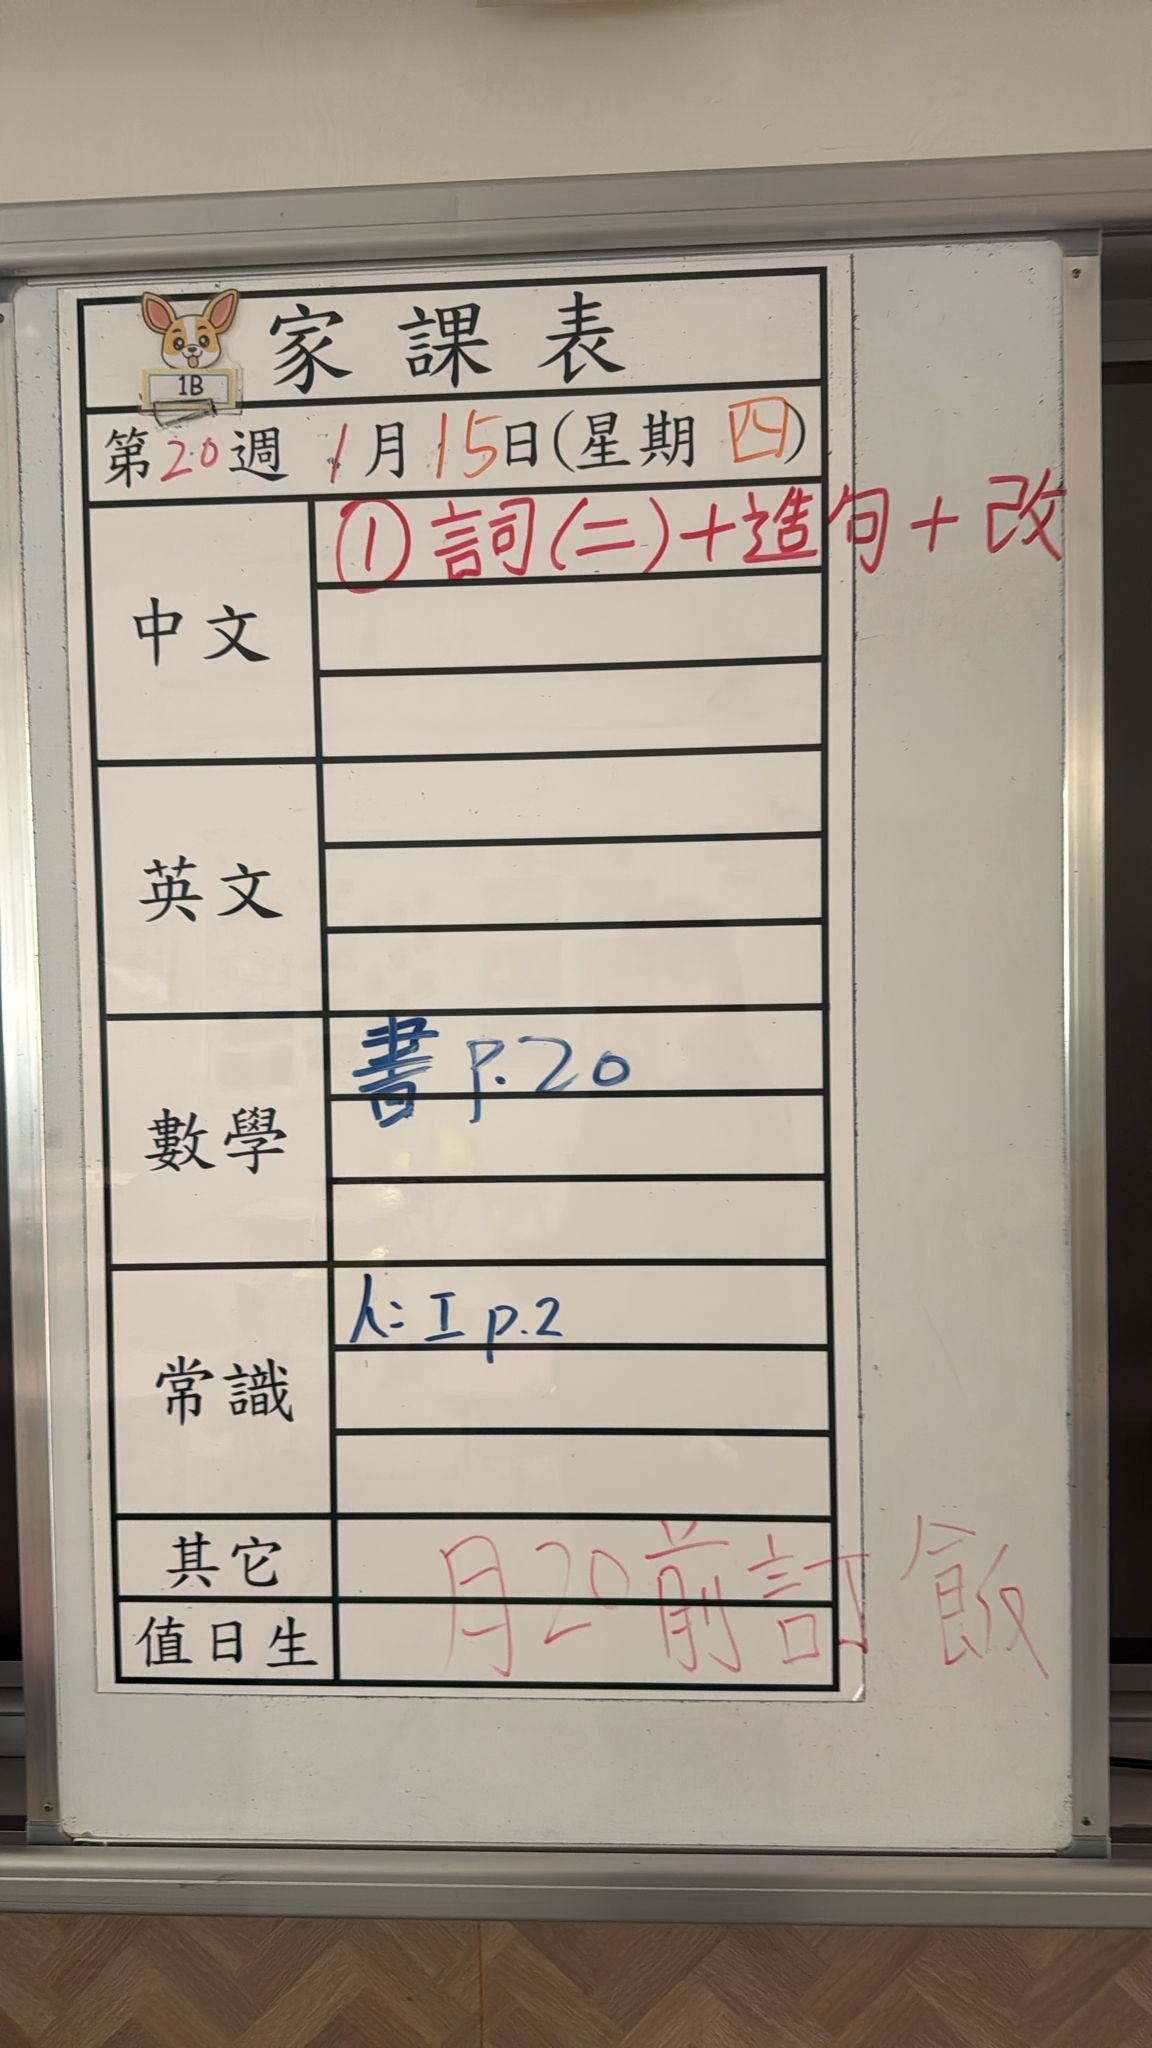 家課表
1B
第20週 1月15日(星期四)
中文
① 詞(二)+造句+改
英文
數學
書 p.20
常識
人: I p.2
其它
月20前訂飯
值日生